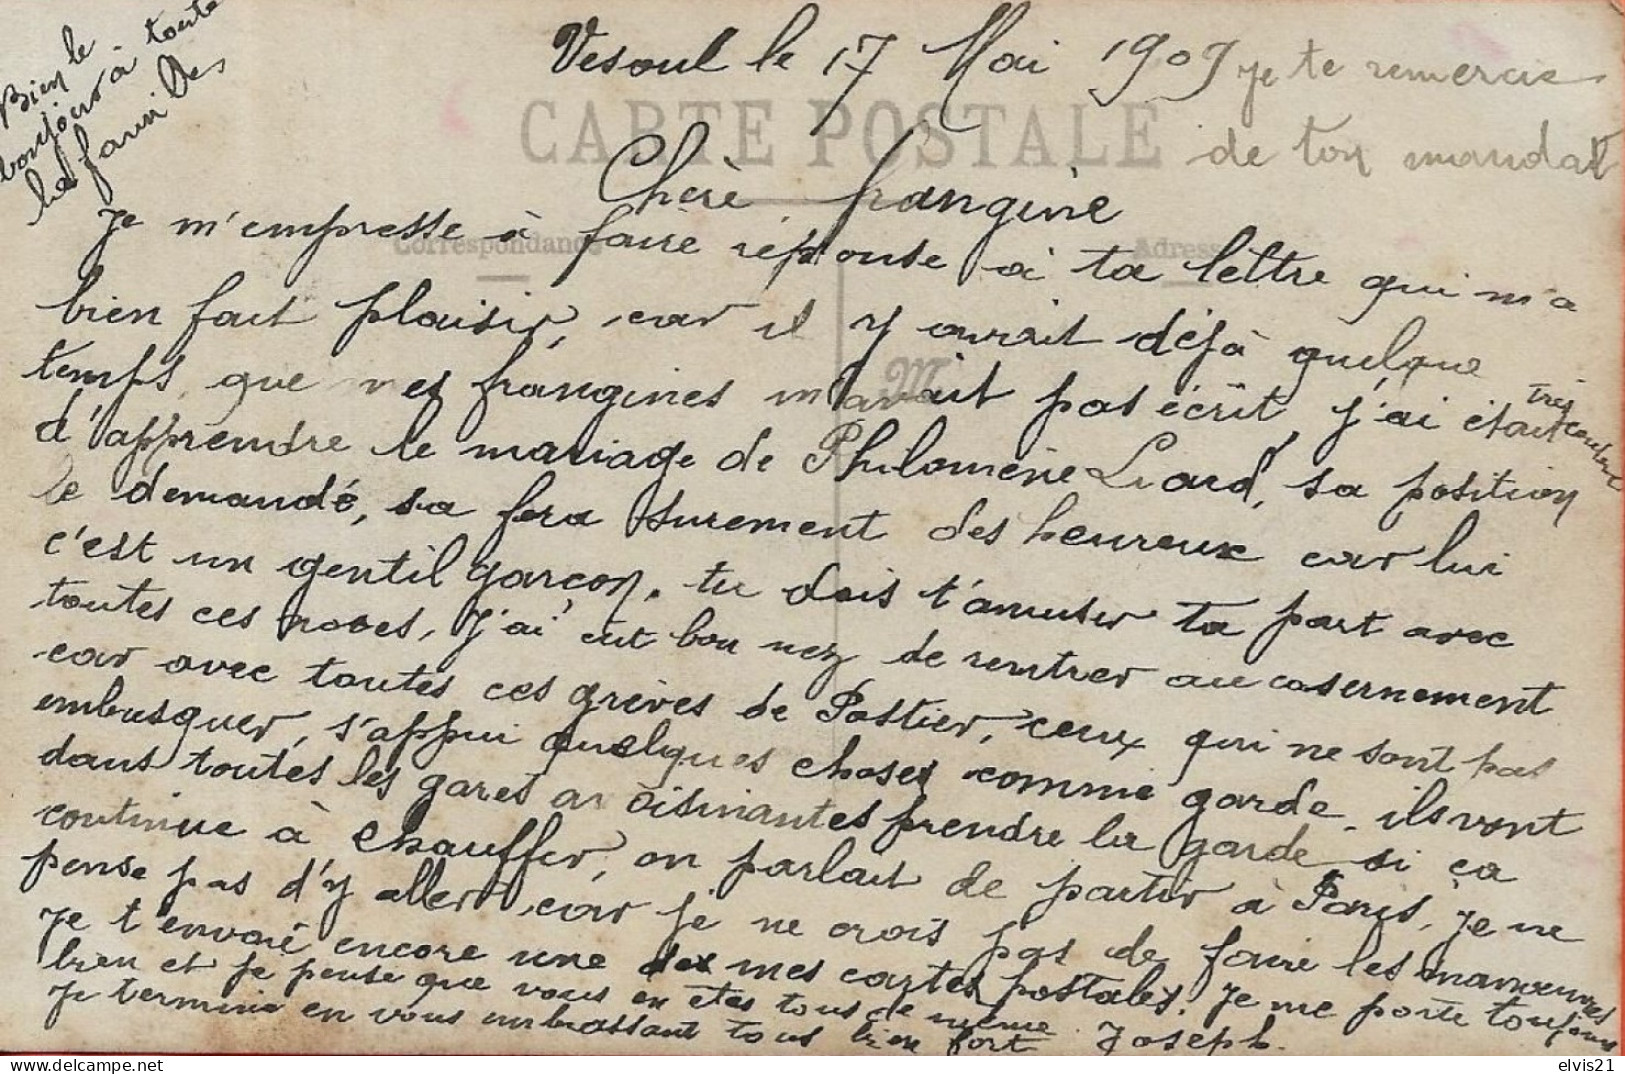 Bien le
bonjour à toute
la famille
Vesoul le 17 Mai 1909
je te remercie
de ton mandat
CARTE POSTALE
Correspondance
Adresse
M
Chère frangine
Je m'empresse à faire réponse à ta lettre qui m'a
bien fait plaisir, car il y avait déjà quelque
temps que mes frangines m'avait pas écrit, j'ai était très content
d'apprendre le mariage de Philomène Liard, sa position
le demandé, sa fera surement des heureux car lui
c'est un gentil garçon. tu dois t'amuser ta part avec
toutes ces noces, J'ai eut bon nez de rentrer au casernement
car avec toutes ces grèves de Postier, ceux qui ne sont pas
embusquer, s'appui quelques choses comme garde. ils vont
dans toutes les gares avoisinantes prendre la garde si ça
continue à chauffer, on parlait de partir à Paris, je ne
pense pas d'y aller, car je ne crois pas de faire les manœuvres
Je t'envoie encore une de mes cartes postales. Je me porte toujours
bien et je pense que vous en etes tous de même.
Je termine en vous embrassant tous bien fort Joseph.
elvis21